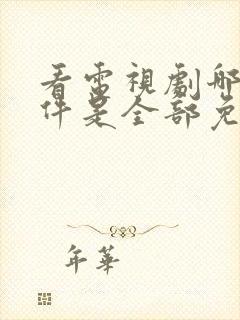 看電視劇哪
件是全部免
年華